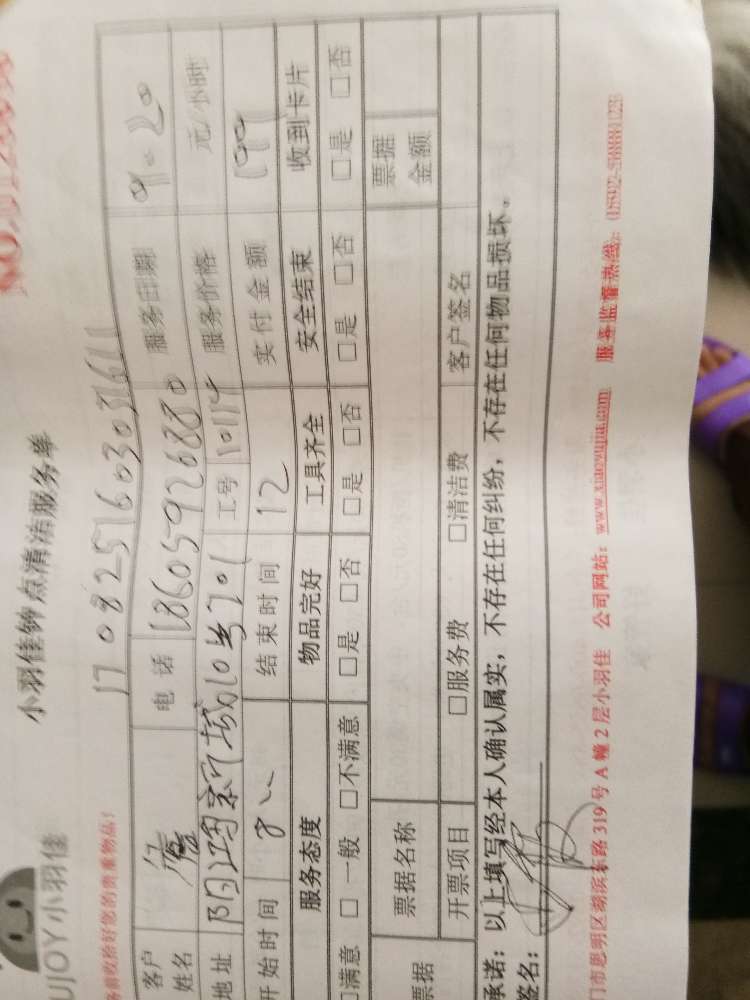 小羽佳钟点清洁服务单
UJOY小羽佳
收拾好您的贵重物品!
17082516030031611
客户姓名 电话 18605926880 服务日期 9.20
地址 工号 10114 服务价格 元/小时
开始时间 8 结束时间 12 实付金额 199
服务态度 物品完好 工具齐全 安全结束 收到卡片
□满意 □一般 □不满意 □是 □否 □是 □否 □是 □否 □是 □否
票据 票据名称 票据金额
开票项目 □服务费 □清洁费 客户签名
承诺:以上填写经本人确认属实,不存在任何纠纷,不存在任何物品损坏。
签名:
门市思明区湖滨东路319号A幢2层小羽佳 公司网站:www.xiaoyujia.com 服务监督热线: